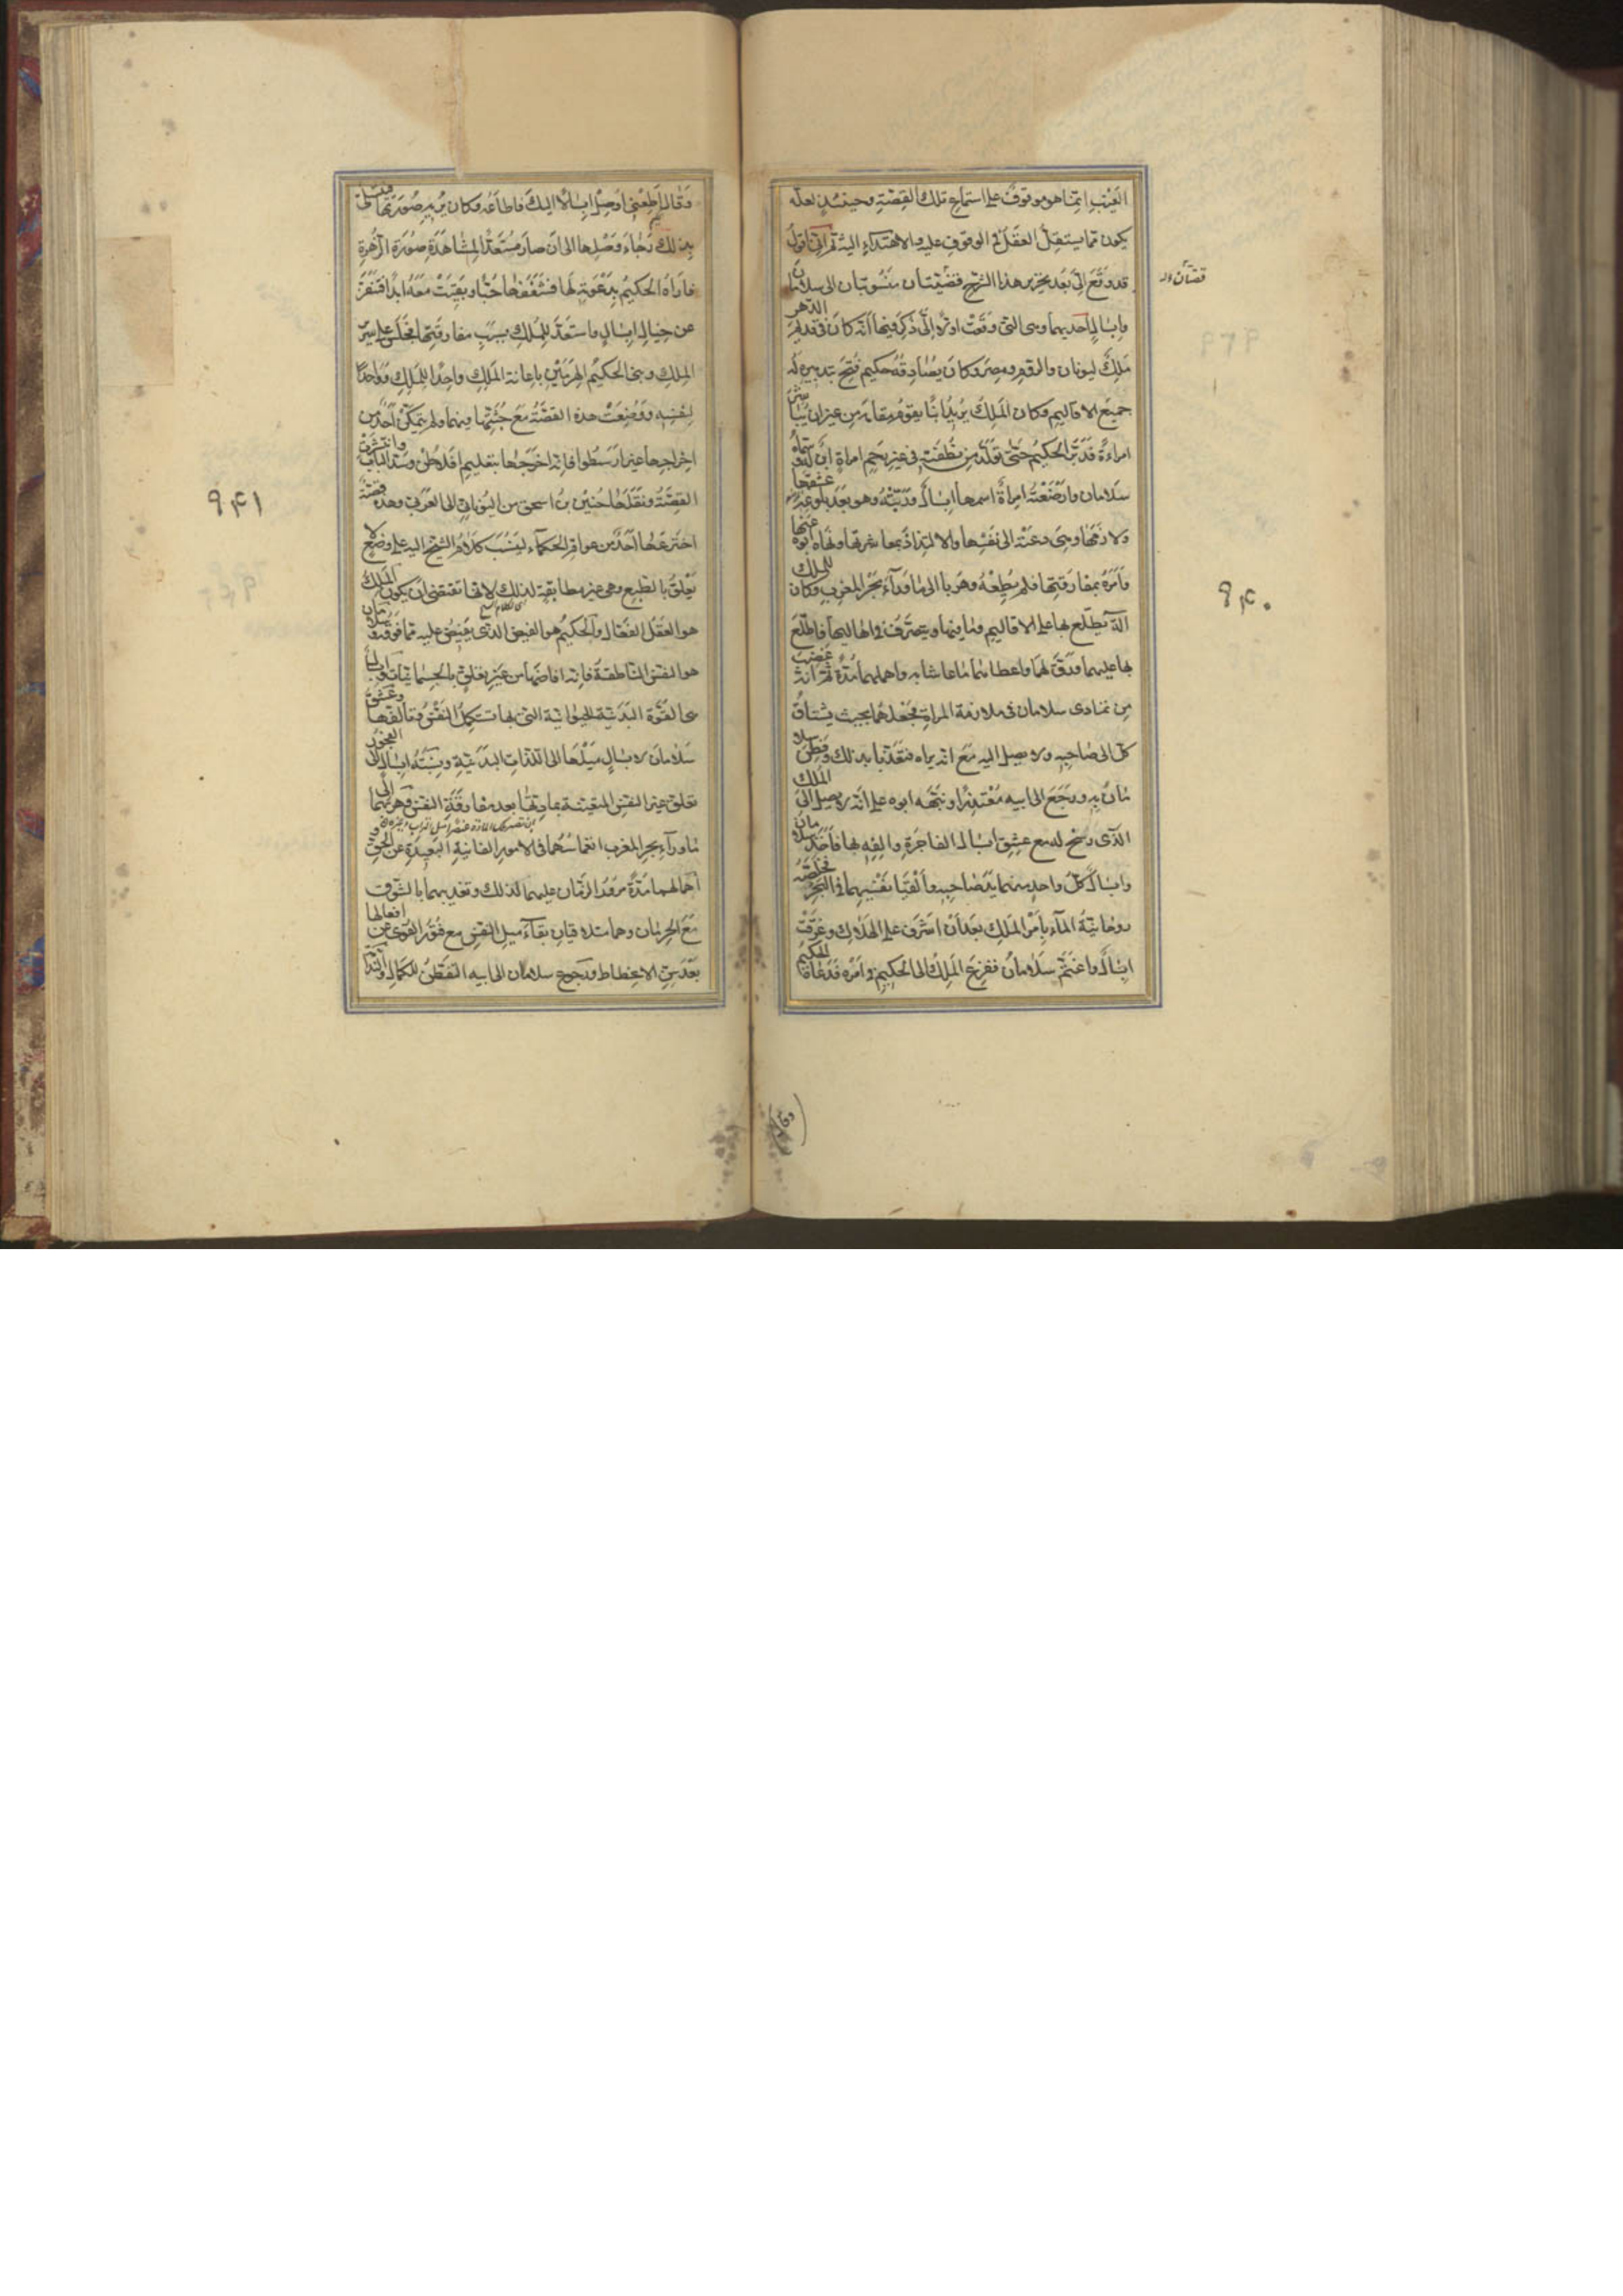 الغَيْبِ انّما هو موقوفٌ على استماعِ تلك القِصَّةِ وحينئذٍ لعلّه
يكون ممّا يستقِلُّ العقلُ في الوقوفِ عليه والاهتداءِ اليه ثم انّى اقول
قد وقَعَ الىَّ بَعْدَ تحريرِ هذا الشرح قصّتان منسُوبتان الى سلامان
وابسال احديهما وهى التى وقعَتْ اوّلاً الىَّ ذكر فيها انّه كانَ فى قديم الدّهر
ملكٌ ليونان والرّومِ ومصرَ وكان يصادقه حكيم فُتِحَ بتدبيره له
جميعَ الاقاليم وكان المَلِكُ يريد ابنًا يقومُ مقامَه من غيرِ ان يباشر
امراةً فدبّر الحكيمُ حتّى تولّدَ من نُطْفَتِه فى غير رحِمِ امراةٍ ابنٌ له سمّاه
سلامان وارضَعَتْه امراةٌ اسمها ابسال وربّته وهو بعد بلوغه عشقها
ولازمَها وهى دعَتْه الى نفسها والالتذاذ بمعاشرتها ونهاه ابوه عنها
وامَرَهُ بمفارقتِها فلم يُطِعْهُ وهَربا الى ما وراء بحْر المغربِ وكان للملك
آلة يطّلع بها على الاقاليم وما فيها ويتصرّفُ فى اهاليها فاطّلع
بها عليهما ورَقَّ لهما واعطاهما ما عاشا به واهملهما مُدّة ثم انه غضب
من تمادى سلامان فى ملازمة المراة فجعلهما بحيث يشتاقُ
كلّ الى صاحبِه ولا يصِل اليه مَعَ انّه يراه فتعذّبا بذلك وفطِن سلا
مانُ به ورجَعَ الى ابيه مُعْتَذِرًا ونبّهه ابوه على انّه لا يصِل الى الملك
الذى رشح له مع عشِقِه ابسال الفاجرةِ والفِه بها فاخَذَ سلامان
وابسال كلّ واحدٍ منهما يدَ صاحبِه والقَيا نفْسَيهما فى البحر فخلّصه
روحانيّةُ الماء بامْرِ الملكِ بعد ان اشرَف على الهلاك وغرقَتْ
ابسال واغتمّ سلامانُ ففزِعَ الملكُ الى الحكيم فى امره فدعاه الحكيم
قصّتان
٩۴٠
وقال اطِعْنى اوصِلْ ابسالًا اليك فاطاعَه وكان يُريهِ صورتها فيتسلّى
بذلك رَجاءَ وَصْلِها الى ان صارَ مُستعدًّا لمشاهدةِ صُورَةِ الزُّهرة
فاراه الحكيمُ بدَعْوتِه لها فشغفها حُبًّا وبقِيَتْ معه ابدًا فتنفّرَ
عن خيالِ ابسال واستعَدَّ للملكِ بسبب مفارقتها فجلس على سرير
الملك وبنى الحكيمُ الهرمَيْنِ باعانة الملك واحدًا للملك وواحدًا
لنفسِه ووُضِعَتْ هذه القصّةُ معَ جُثّتِهما فيهما ولم يتمكّن احَدٌ من
اخراجها غير ارسطوا فانّه اخرَجَها بتعليم افلاطُن وسدّ الباب وانتشرَتْ
القِصّةُ ونقَلَها حُنين بنُ اسحق من اليونانى الى العرَبى وهذه قصّة
اخترعَها احَدٌ من عوامّ الحكماء لينسب كلامُ الشيخ اليه على وضع لا
يَعْلقُ بالطبعِ وهى غير مطابِقةٍ لذلك لانّها تقتضى ان يكون الملك
هو العقل الفعّال والحكيم هو الفيض الذى يفيض عليه ممّا فوقه وسلامان
هو النفس الناطقة فانّه افاضها من غير تعلّقٍ بالجسمانيّات وابسال
هى القُوّة البدنيّة الحيوانيّة التى بها تستكمِلُ النفسُ وتألفها وعشق
سلامان لابسال مَيْلها الى اللذّاتِ البدنيّةِ ونسبَتُه ابسال الى الفجور
تعلّق غير النفس المتعيّنة بمادّتها بعد مفارقَةِ النفس وهربهما الى
ما وراء بحر المغرب انغماسُهما فى الامور الفانيةِ البعيدةِ عن الحقّ و
اهمالهما مدّة مرورُ الزمان عليهما لذلك وتعذيبهما بالشوق
معَ الحرمان وهما متلاقيان بقاءُ ميل النفس مع فتُور القوى عن افعالها
بعدَ سِنّ الانحطاط ورجوع سلامان الى ابيه التفطّنُ للكمالِ والنّدامة
٩۴١